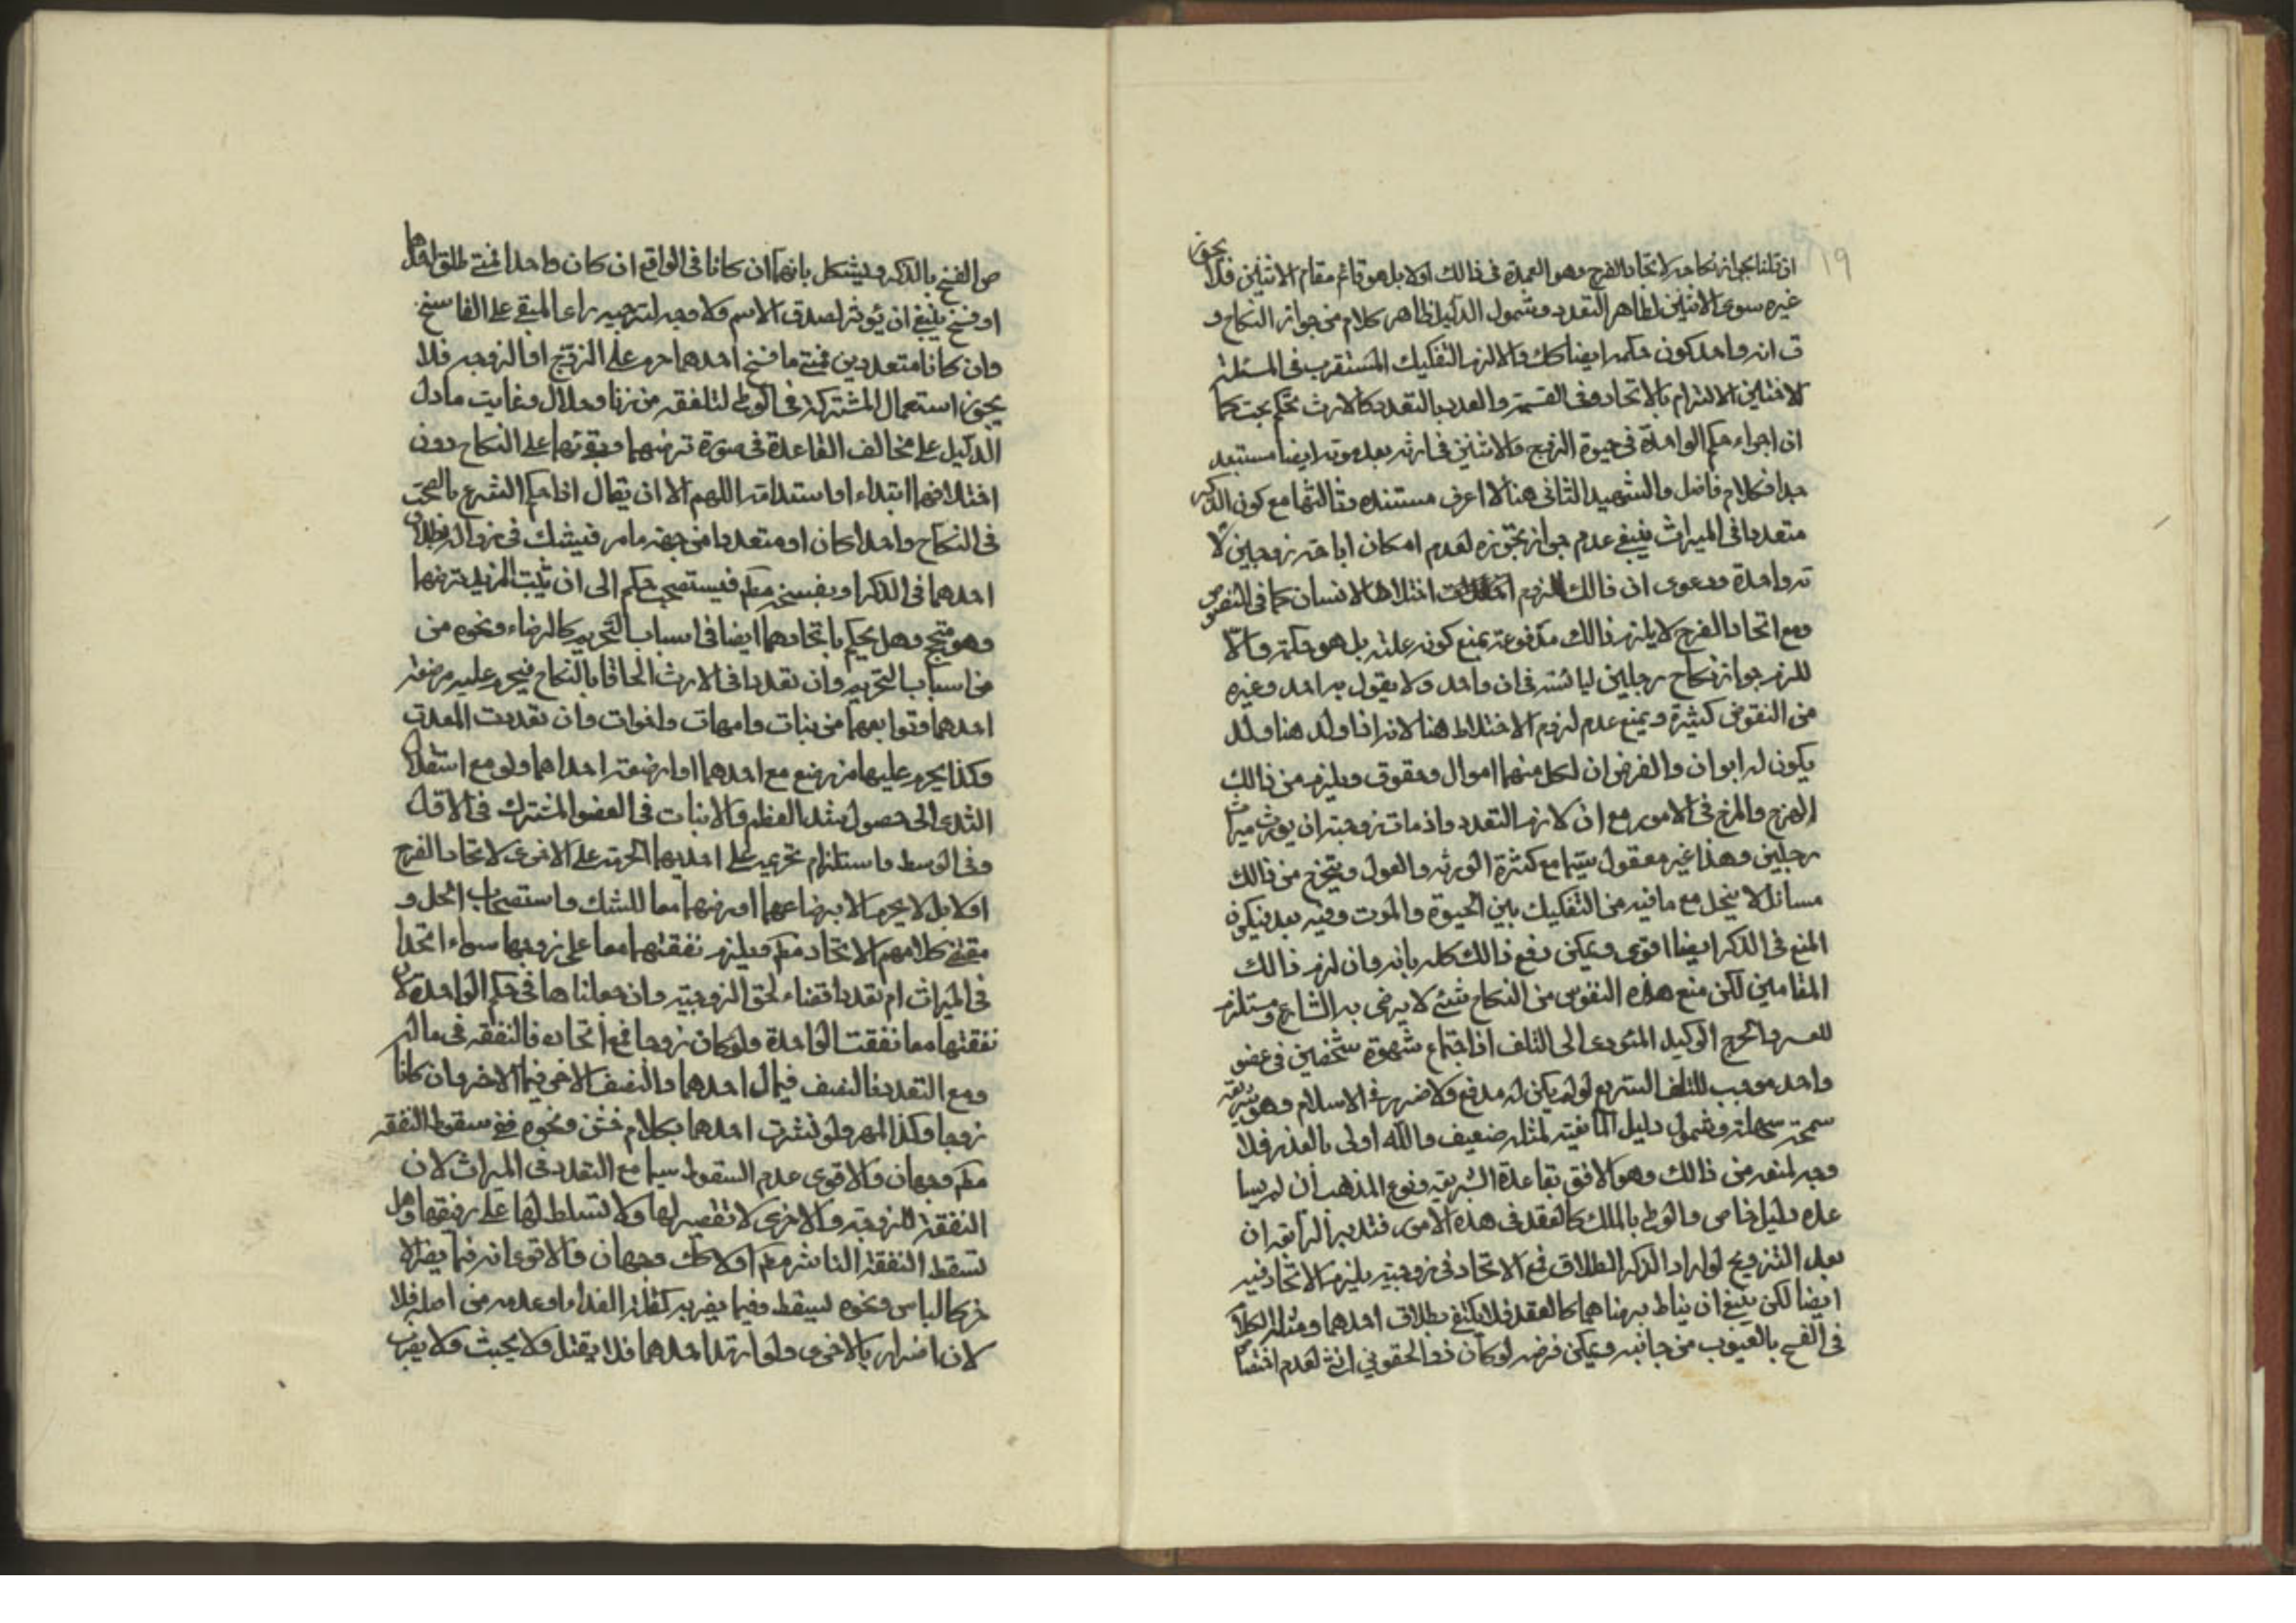 ١٩
ان قلنا بجواز نكاحه لاتحاد الفرج وهو العمدة في ذالك اولا بل هو قائم مقام الاثنين فلا يجوز
غيره سوى الاثنين لظاهر التعدد وشمول الدليل ظاهر كلام من جواز النكاح و
ق انه واحد كون حكمه ايضا كك والا لزم التفكيك المستقرب في المسئلة
لا الالتزام بالاتحاد وفي القسمة والعدد بالتعدد كالارث تحكم بحت كما
ان اجراء حكم الواحدة في حيوة الزوج والاثنين في ارثه بعد موته ايضا مستبعد
جدا فكلام فاضل والشهيد الثاني هنا لا اعرف مستنده وثالثها مع كون الذكر
متعددا في الميراث ينبغي عدم جواز تجوزه لعدم امكان اباحة زوجين لا
ته واحدة ودعوى ان ذالك للزوم اختلاط الانسان كما في النصوص
ومع اتحاد الفرج لا يلزم ذالك مدفوعة بمنع كونه علة بل هو حكمة والا
للزم جواز نكاح رجلين ليائسة في ان واحد ولا يقول به احد وغيره
من النقوض كثيرة ويمنع عدم لزوم الاختلاط هنا لانه اذا ولد هنا ولد
يكون له ابوان والفرض ان لكل منهما اموال وحقوق ويلزم من ذالك
الهرج والمرج في الامور مع ان لازم التعدد واذ مات زوجته ان يورث ميراث
رجلين وهذا غير معقول سيما مع كثرة الورثه والعول ويتخرج من ذالك
مسائل لا ينحل مع ما فيه من التفكيك بين الحيوة والموت وفيه بعد فيكون
المنع في الذكر ايضا اقوى ويمكن دفع ذالك كله بانه وان لزم ذالك
المقامين لكن منع هذه النفوس من النكاح شئ لا يرضى به الشارع ومستلزم
للعسر والحرج الوكيد المؤدى الى التلف اذ اجتماع شهوة شخصين في عضو
واحد موجب للتلف السريع لو لم يكن له مدفع ولا ضرر في الاسلام وهو شريعة
سمحة سهلة وشمول دليل المانعية لمثله ضعيف والله اولى بالعذر فلا
وجه لمنعه من ذالك وهو الاوفق بقاعدة الشريعة وفوع المذهب ان لم يسا
عده دليل خاص والوطى بالملك كالعقد في هذه الامور فتدبر الرابعه ان
بعد التزويج لو اراد الذكر الطلاق فمع الاتحاد في زوجيته يلزم الاتحاد فيه
ايضا لكن ينبغي ان يناط برضاهما كالعقد فلا يكتفى بطلاق احدهما ومثله الكلام
في الفسخ بالعيوب من جانبه ويمكن فرضه لو كان ذو الحقوين انثى لعدم اختصا
ص الفسخ بالذكر ويشكل بانهما ان كانا في الواقع ان كان واحدا فمتى طلق احدهما
او فسخ ينبغي ان يؤثر لصدق الاسم ولا وجه لترجيه راى المبقى على الفاسخ
وان كانا متعددين فمتى ما فسخ احدهما حرم على الزوج او الزوجه فلا
يجوز استعمال المشتركة في الوطى لتلفقه من زنا وحلال وغايت ما دل
الدليل على مخالف القاعدة في صورة ترضيهما وبقوتهما على النكاح دون
اختلافهما ابتداء او استدامة اللهم الا ان يقال اذا حكم الشرع بالصحة
في النكاح واحدا كان او متعددا من جهة ما مر فنيشك في زواله بطلاق
احدهما في الذكر او بفسخه مطم فيستصحب حكمه الى ان يثبت المزيل رضهما
وهو متجه وهل يحكم باتحادهما ايضا في اسباب التحريم كالرضاء ونحوه من
من اسباب التحريم وان تعددا في الارث الحاقا بالنكاح فيحرم عليه مرضعة
احدهما وتوابعهما من بنات وامهات واخوات وان تعددت المعدة
وكذا يحرم عليهما من رضع مع احدهما او ارضعته احداهما ولو مع استقلال
الثدى الى حصول شد العظم والانبات في العضو المشترك في الاقل
وفي الوسط واستلزام تحريمه على احديهما الحرمة على الاخرى لاتحاد الفرج
اولا بل لا يحرم الا برضاعهما او رضهما معا للشك واستصحاب الحل و
مقتضى كلامهم الاتحاد مطم ويلزم نفقتهما معا على زوجهما سواء اتحدا
في الميراث ام تعددا قضاء لحق الزوجيته وان جعلناها في حكم الواحدة لان
نفقتهما معا نفقت الواحدة ولو كان زوجا فمع اتحاده فالنفقه في ماله
ومع التعدد فالنصف في مال احدهما والنصف الاخر في مال الاخر وان كانا
زوجا وكذا المهر ولو نشزت احدهما بكلام خشن ونحوه ففي سقوط النفقه
مطم وجهان والاقوى عدم السقوط سيما مع التعدد في الميراث لان
النفقة للزوجته والاخرى لا تقصير لها ولا تسلط لها على رفيقها وهل
تسقط النفقة الناشز مطم اولا كك وجهان والاقوى انه فيما يضر الا
خر كالباس ونحوه ليسقط وفيما يضر به كقلة الغذاء او عدمه من اصله فلا
لان اضرار بالاخرى ولو ارتد احدهما فلا يقتل ولا يحبث ولا يضرب